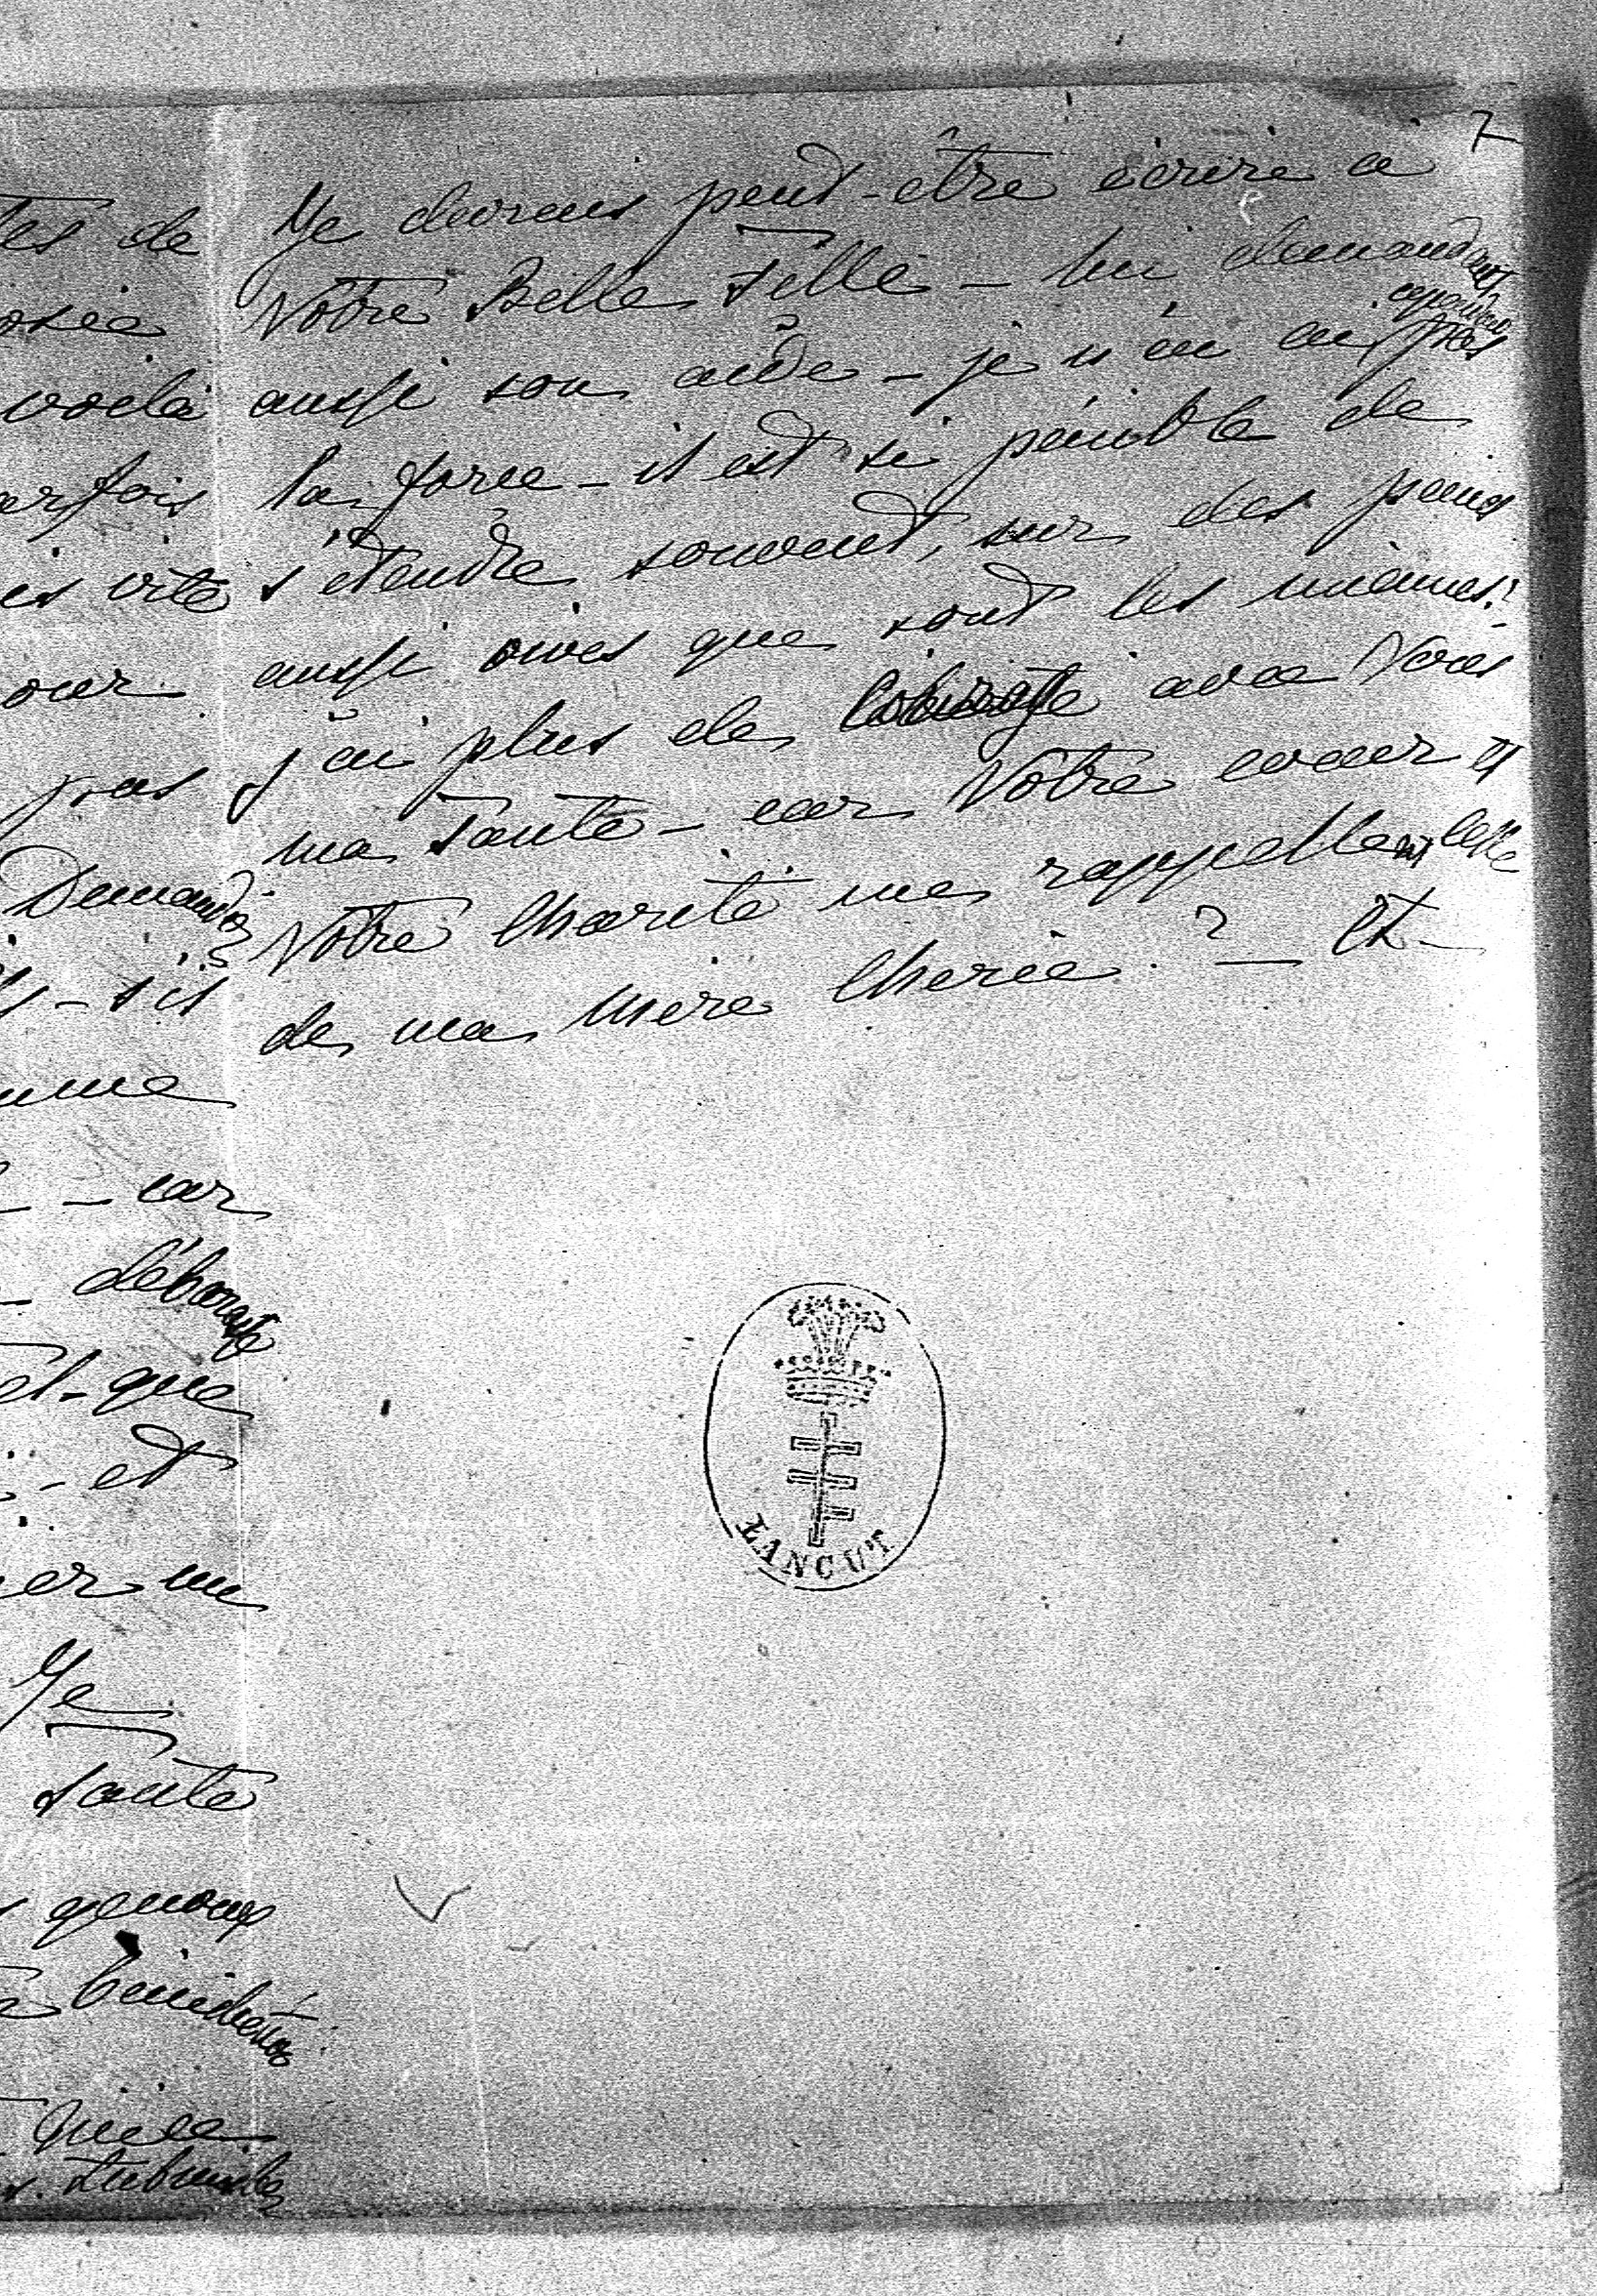 7
Je devrais peut-être écrire à
Votre Belle fille - lui demandant
aussi son aide - je n'en ai cependant pas
la force - il est si pénible de
s'étendre souvent, sur des peines
aussi vives que sont les miennes!
j'ai plus de courage avec Vous
ma Tante - car Votre coeur et
Votre Charité me rappellent celle
de ma Mère Cherie ? - Et
tes de
voilà
erfois
es vite
our
pas
Demandez
- s'il
- car
et-que
- et
er un
Je
Tante
genoux
Nièce
ŁAŃCUT